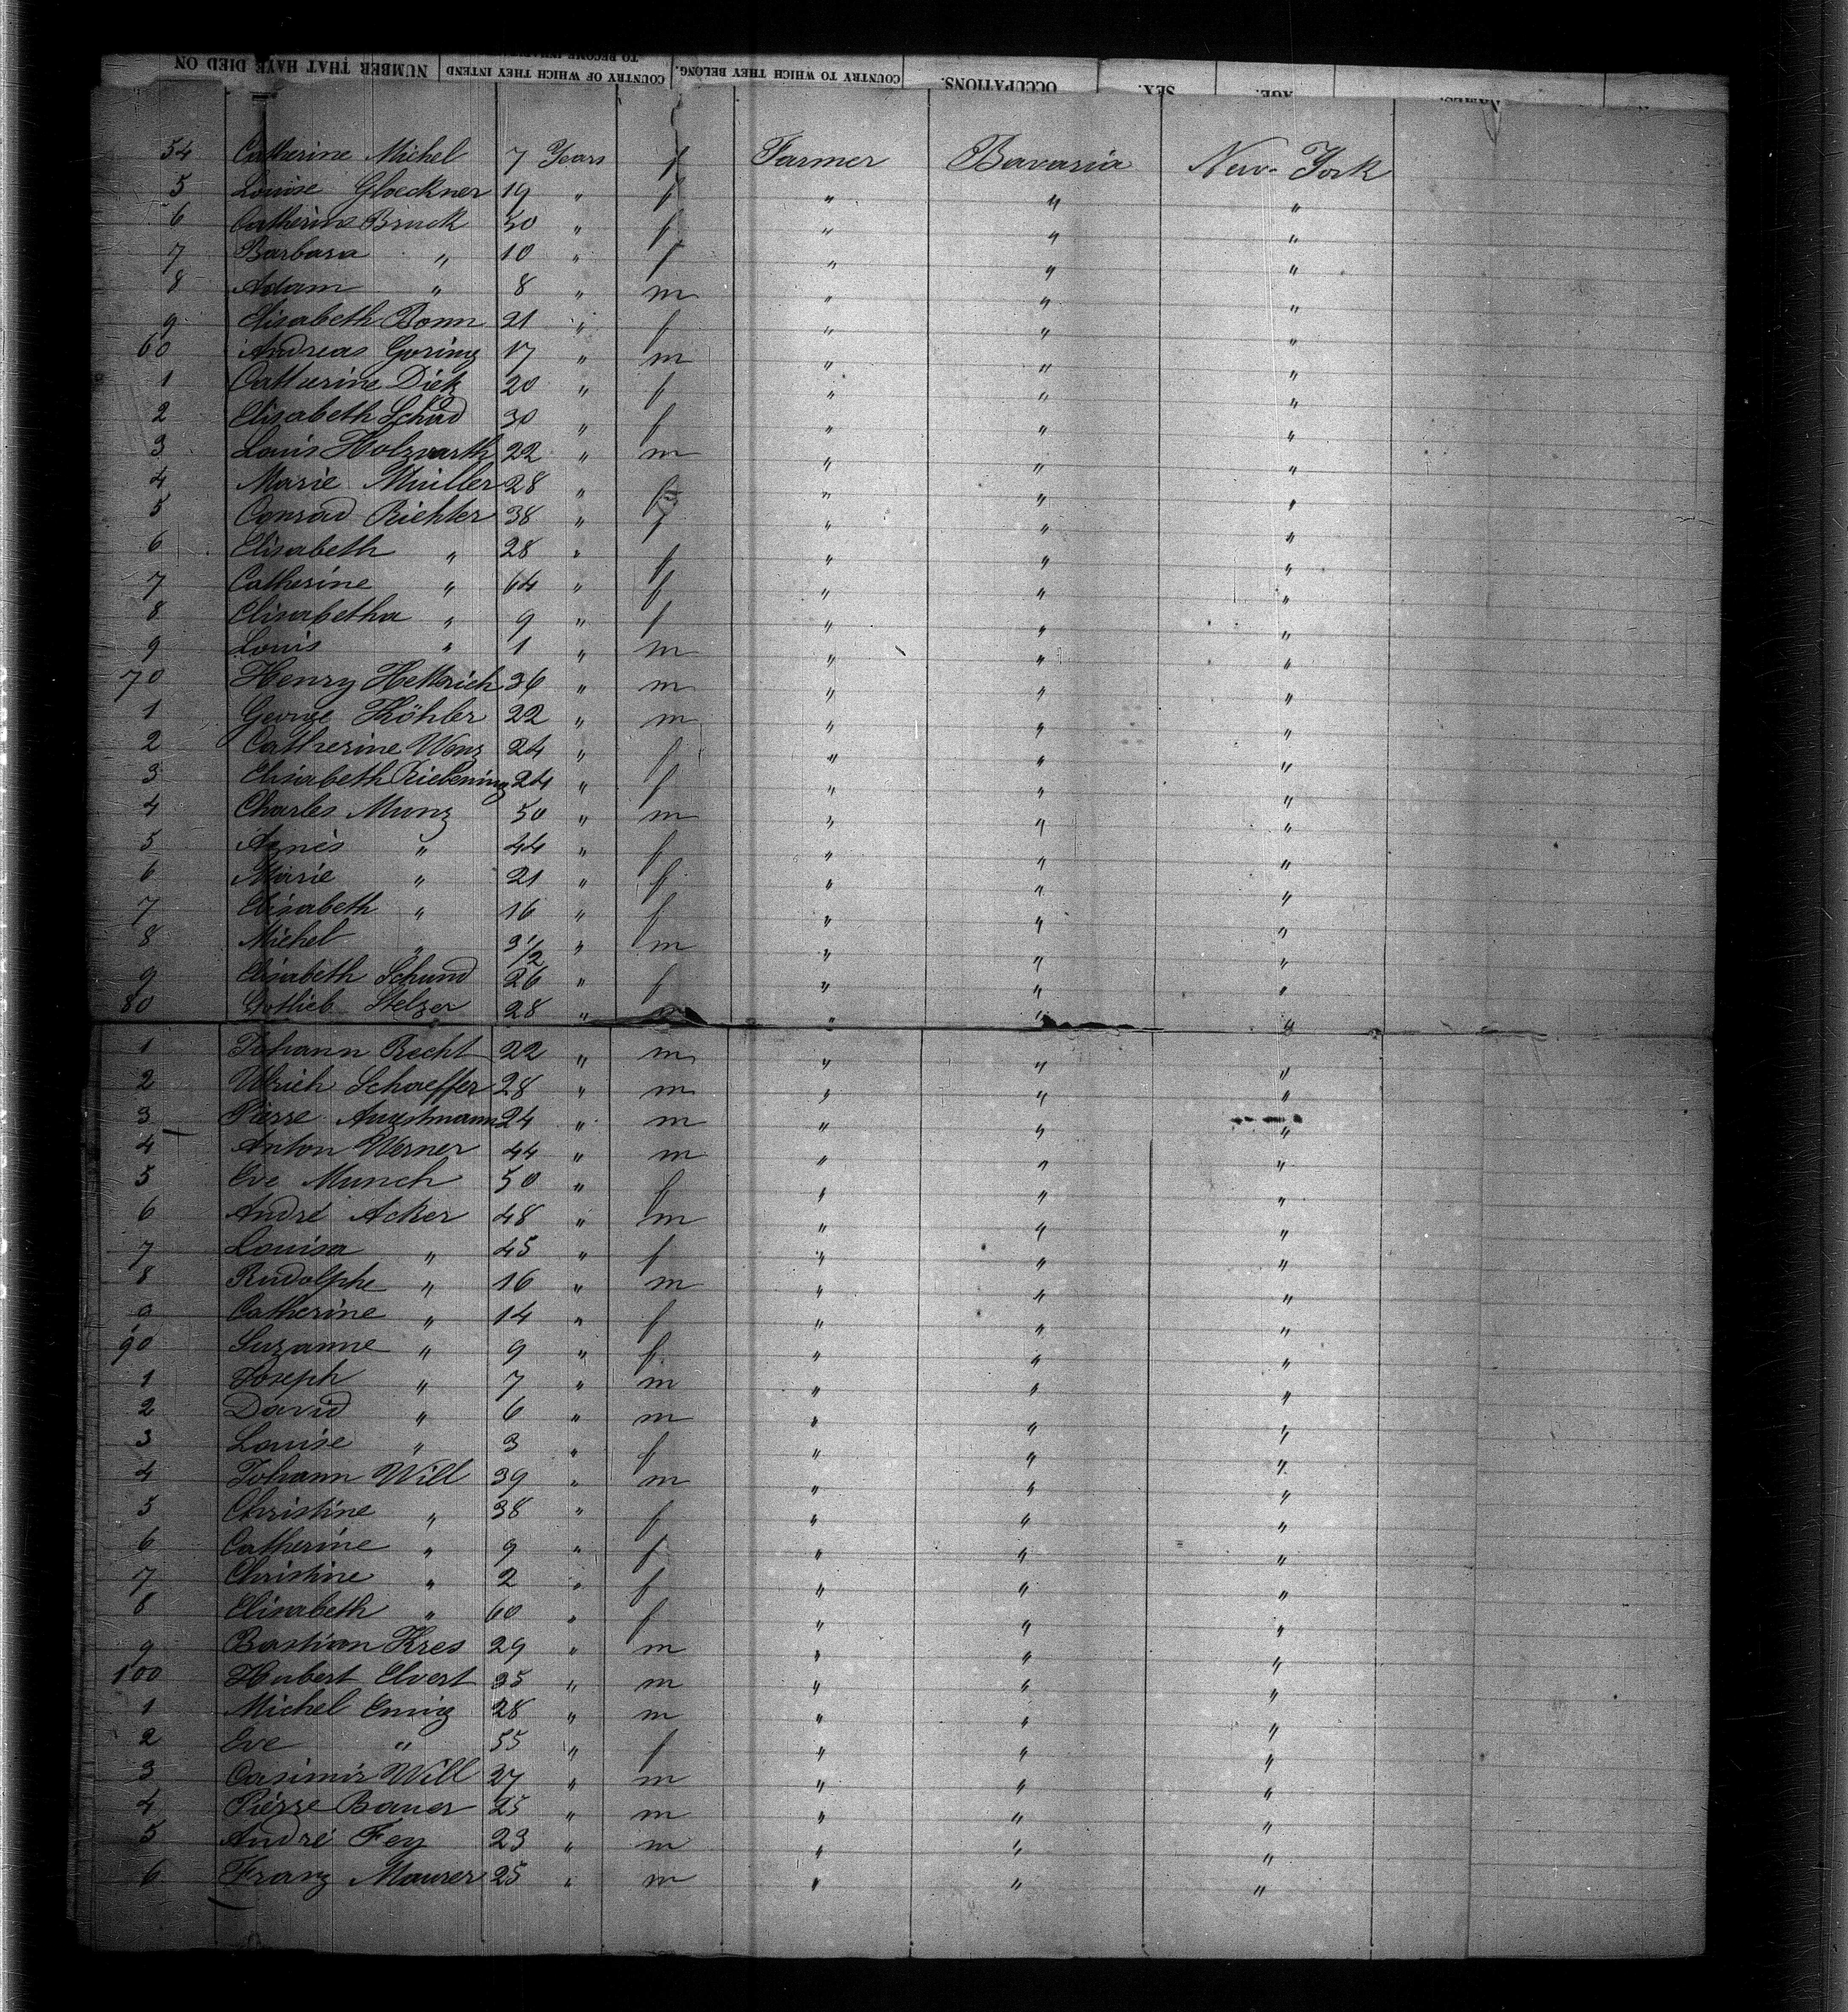 NUMBER THAT HAVE DIED ON COUNTRY OF WHICH THEY INTEND TO BECOME COUNTRY TO WHICH THEY BELONG. OCCUPATIONS. SEX. AGE. NAMES.
54 Catherine Michel 7 Years f Farmer Bavaria New-York
5 Louise Gloeckner 19 " f " " "
6 Catherine Bruck 50 " f " " "
7 Barbara " 10 " f " " "
8 Adam " 8 " m " " "
9 Elisabeth Bonn 21 " f " " "
60 Andreas Goring 17 " m " " "
1 Catherine Diek 20 " f " " "
2 Elisabeth Schüd 30 " f " " "
3 Louis Holzwarth 22 " m " " "
4 Marie Müller 28 " f " " "
5 Conrad Richter 38 " f " " "
6 Elisabeth " 28 " f " " "
7 Catherine " 64 " f " " "
8 Elisabetha " 9 " f " " "
9 Louis " 1 " m " " "
70 Henry Hettrich 36 " m " " "
1 George Köhler 22 " m " " "
2 Catherine Wenz 24 " f " " "
3 Elisabeth Riebening 24 " f " " "
4 Charles Munz 50 " m " " "
5 Agnes " 44 " f " " "
6 Marie " 21 " f " " "
7 Elisabeth " 16 " f " " "
8 Michel " 3 1/2 " m " " "
9 Elisabeth Schund 26 " f " " "
80 Gottlieb Stelzer 28 " m " " "
1 Johann Recht 22 " m " " "
2 Ulrich Schaeffer 28 " m " " "
3 Pierre Augstmann 24 " m " " "
4 Anton Werner 44 " m " " "
5 Eve Munch 50 " f " " "
6 André Acker 48 " m " " "
7 Louisa " 45 " f " " "
8 Rudolphe " 16 " m " " "
9 Catherine " 14 " f " " "
90 Suzanne " 9 " f " " "
1 Joseph " 7 " m " " "
2 David " 6 " m " " "
3 Louise " 3 " f " " "
4 Johann Will 39 " m " " "
5 Christine " 38 " f " " "
6 Catherine " 9 " f " " "
7 Christine " 2 " f " " "
8 Elisabeth " 60 " f " " "
9 Bastian Kres 29 " m " " "
100 Hubert Elvert 35 " m " " "
1 Michel Emig 28 " m " " "
2 Eve " 55 " f " " "
3 Casimir Will 27 " m " " "
4 Pierre Bauer 25 " m " " "
5 André Fey 23 " m " " "
6 Franz Maurer 25 " m " " "